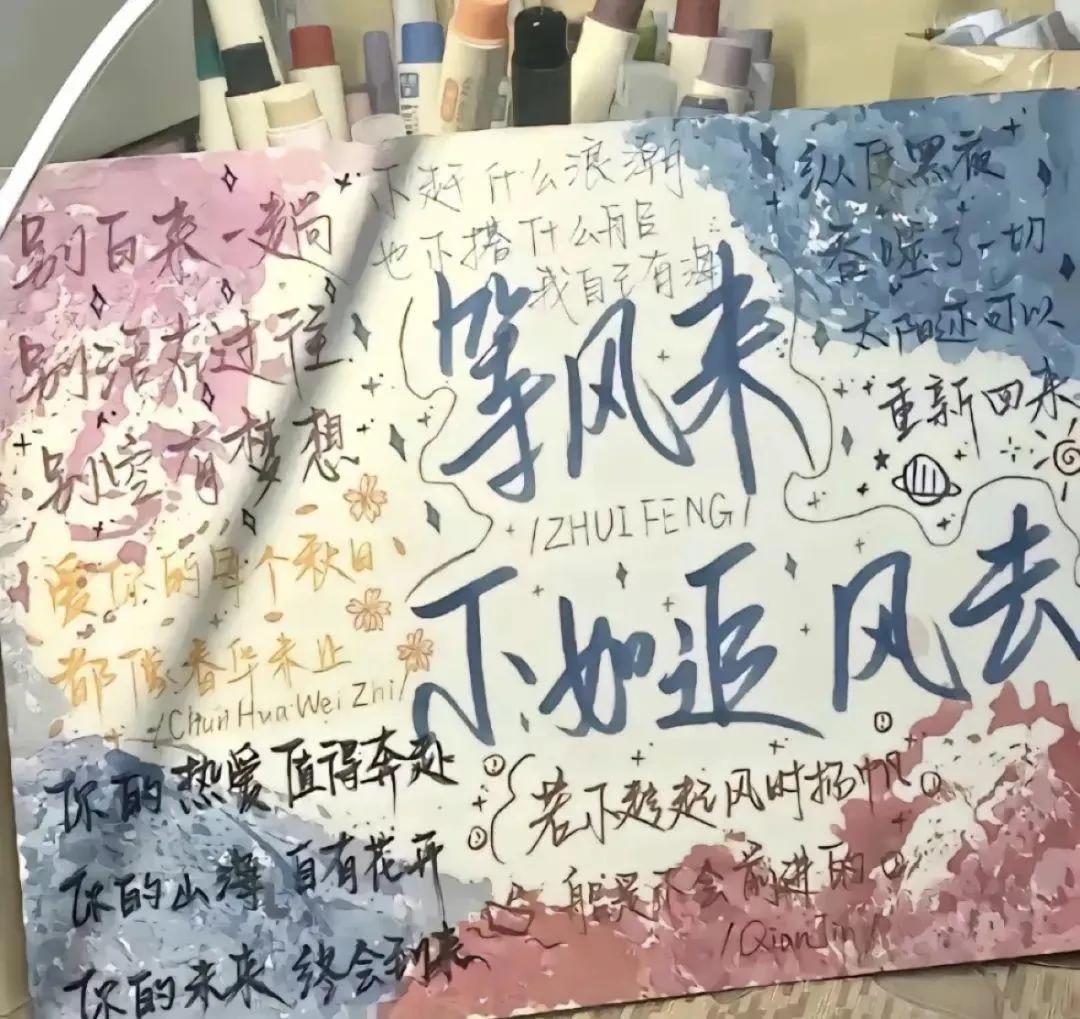 别白来一趟
别活在过往
别空有梦想
不赶什么浪潮
也不搭什么船
我自己有海
纵使黑夜
吞噬了一切
太阳还可以
重新回来
等风来
/ZHUI FENG/
不如追风去
爱你的每个秋日、
都似春华未止
/Chun Hua Wei Zhi/
你的热爱 值得奔赴
你的山海 自有花开
你的未来 终会到来
若不趁起风时扬帆
船是不会前进的
/QianJin/